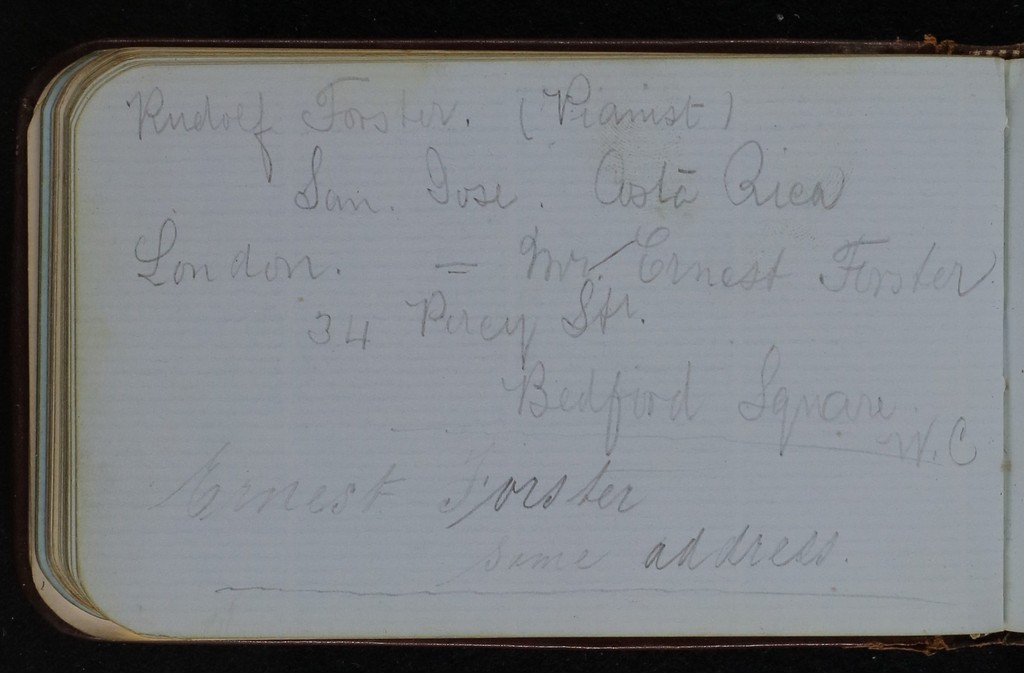 Rudolf Forster. (Pianist)
San. Jose. Costa Rica
London. = Mr. Ernest Forster
34 Percy Str.
Bedford Square.
W.C
Ernest Forster
same address.